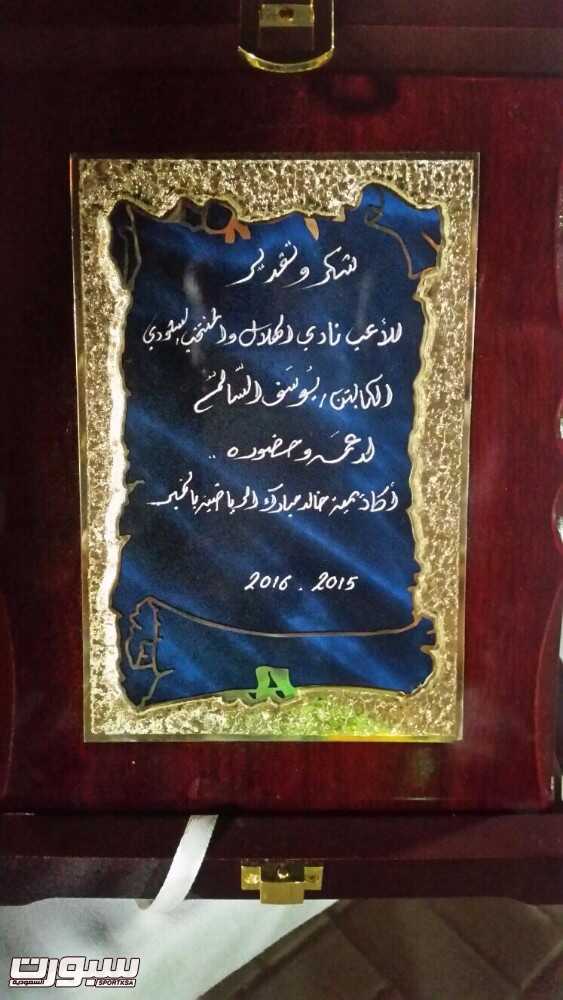 شكر وتقدير
للأعب نادي الهلال والمنتخب السعودي
الكابتن / يُوسَف السَّالمْ
لدعمه وحضوره ..
أكاديمية خالد مبارك الرياضية بالخبر
2016 . 2015
سبورت
السعودية
SPORTKSA